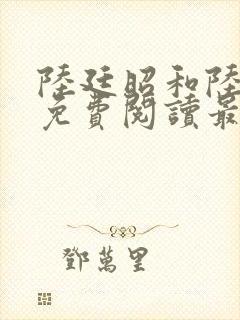 陸廷昭和陸
免費閱讀最
鄧萬里